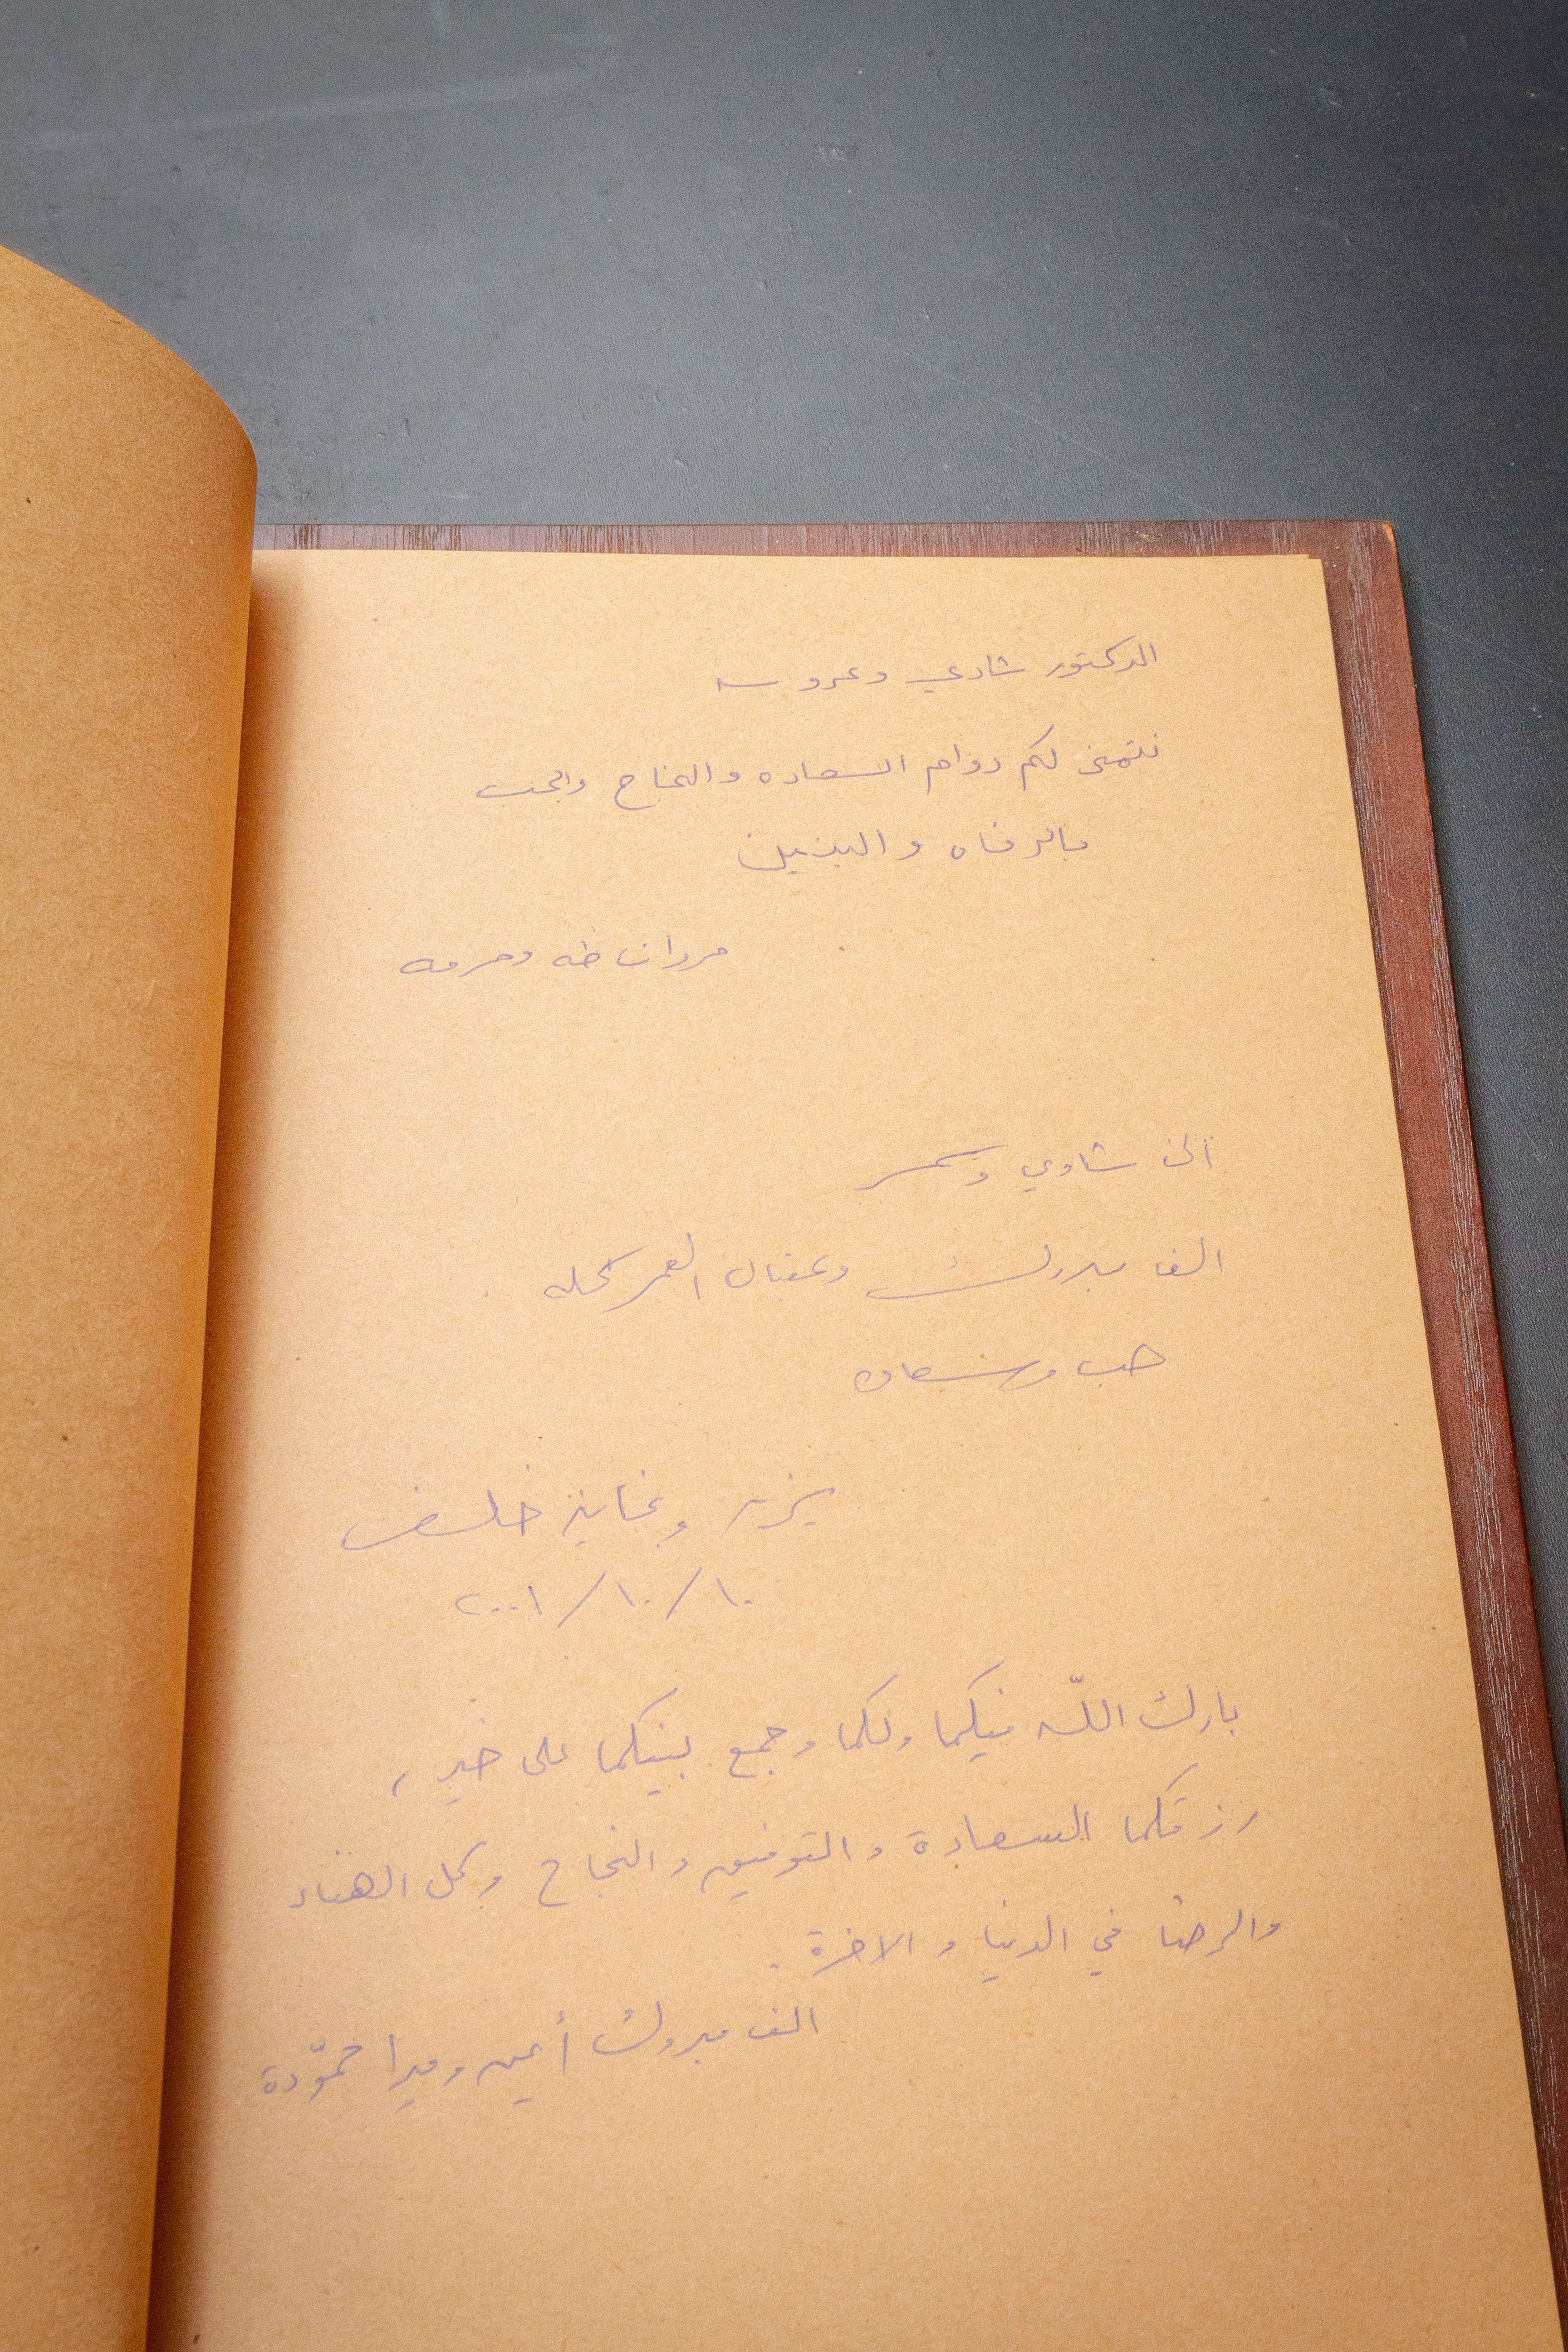 الدكتور شادي وعروسه
نتمنى لكم دوام السعاده والنجاح والحب
بالرفاه والبنين
مروان طه وحرمه
الى شادي وسمر
الف مبروك وعقبال العمر كله
حب وسعاده
يزيد وغاية خلف
١٠/١٠/٢٠٠١
بارك اللّه فيكما ولكما وجمع بينكما على خير،
رزقكما السعادة والتوفيق والنجاح وكل الهناء
والرضا في الدنيا والاخرة.
الف مبروك أيمن وميرا حمّودة